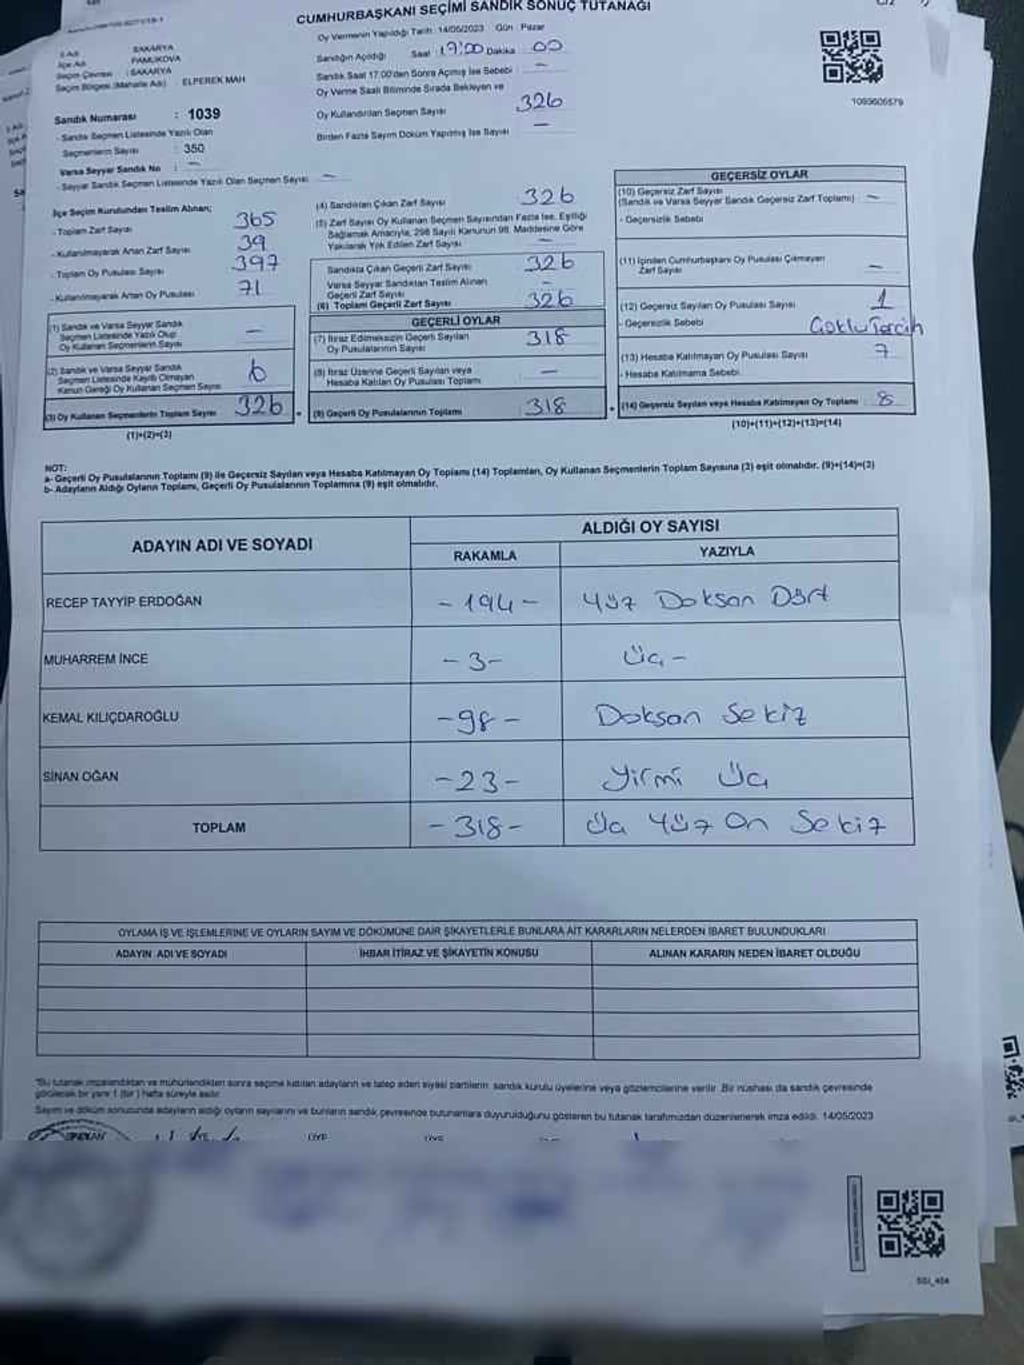 CUMHURBAŞKANI SEÇİMİ SANDIK SONUÇ TUTANAĞI
Oy Vermenin Yapıldığı Tarih :14/05/2023 Gün : Pazar
İl Adı : SAKARYA
İlçe Adı : PAMUKOVA
Seçim Çevresi : SAKARYA
Seçim Bölgesi (Mahalle Adı) : ELPEREK MAH
Sandığın Açıldığı Saat : 17:00 Dakika : 00
Sandık Saat 17.00'den Sonra Açılmış İse Sebebi : —
Oy Verme Saati Bitiminde Sırada Bekleyen ve
Oy Kullandırılan Seçmen Sayısı 326
Birden Fazla Sayım Döküm Yapılmış İse Sayısı —
1093606579
Sandık Numarası : 1039
- Sandık Seçmen Listesinde Yazılı Olan
Seçmenlerin Sayısı : 350
Varsa Seyyar Sandık No : —
- Seyyar Sandık Seçmen Listesinde Yazılı Olan Seçmen Sayısı : —
İlçe Seçim Kurulundan Teslim Alınan;
- Toplam Zarf Sayısı 365
- Kullanılmayarak Artan Zarf Sayısı 39
- Toplam Oy Pusulası Sayısı 397
- Kullanılmayarak Artan Oy Pusulası 71
(1) Sandık ve Varsa Seyyar Sandık
Seçmen Listesinde Yazılı Olup
Oy Kullanan Seçmenlerin Sayısı —
(2) Sandık ve Varsa Seyyar Sandık
Seçmen Listesinde Kayıtlı Olmayan
Kanun Gereği Oy Kullanan Seçmen Sayısı 6
(3) Oy Kullanan Seçmenlerin Toplam Sayısı 326
(1)+(2)=(3)
(4) Sandıktan Çıkan Zarf Sayısı 326
(5) Zarf Sayısı Oy Kullanan Seçmen Sayısından Fazla İse, Eşitliği
Sağlamak Amacıyla, 298 Sayılı Kanunun 98. Maddesine Göre
Yakılarak Yok Edilen Zarf Sayısı —
Sandıkta Çıkan Geçerli Zarf Sayısı 326
Varsa Seyyar Sandıktan Teslim Alınan
Geçerli Zarf Sayısı —
(6) Toplam Geçerli Zarf Sayısı 326
GEÇERLİ OYLAR
(7) İtiraz Edilmeksizin Geçerli Sayılan
Oy Pusulalarının Sayısı 318
(8) İtiraz Üzerine Geçerli Sayılan veya
Hesaba Katılan Oy Pusulası Toplamı —
(9) Geçerli Oy Pusulalarının Toplamı 318
GEÇERSİZ OYLAR
(10) Geçersiz Zarf Sayısı
(Sandık ve Varsa Seyyar Sandık Geçersiz Zarf Toplamı) —
- Geçersizlik Sebebi
(11) İçinden Cumhurbaşkanı Oy Pusulası Çıkmayan
Zarf Sayısı —
(12) Geçersiz Sayılan Oy Pusulası Sayısı 1
- Geçersizlik Sebebi Çoklu Tercih
(13) Hesaba Katılmayan Oy Pusulası Sayısı 7
- Hesaba Katılmama Sebebi
(14) Geçersiz Sayılan veya Hesaba Katılmayan Oy Toplamı 8
(10)+(11)+(12)+(13)=(14)
NOT:
a- Geçerli Oy Pusulalarının Toplamı (9) ile Geçersiz Sayılan veya Hesaba Katılmayan Oy Toplamı (14) Toplamları, Oy Kullanan Seçmenlerin Toplam Sayısına (3) eşit olmalıdır. (9)+(14)=(3)
b- Adayların Aldığı Oyların Toplamı, Geçerli Oy Pusulalarının Toplamına (9) eşit olmalıdır.
ADAYIN ADI VE SOYADI ALDIĞI OY SAYISI
RAKAMLA YAZIYLA
RECEP TAYYİP ERDOĞAN - 194 - Yüz Doksan Dört
MUHARREM İNCE - 3 - Üç -
KEMAL KILIÇDAROĞLU - 98 - Doksan Sekiz
SİNAN OĞAN - 23 - Yirmi Üç
TOPLAM - 318 - Üç Yüz On Sekiz
OYLAMA İŞ VE İŞLEMLERİNE VE OYLARIN SAYIM VE DÖKÜMÜNE DAİR ŞİKAYETLERLE BUNLARA AİT KARARLARIN NELERDEN İBARET BULUNDUKLARI
ADAYIN ADI VE SOYADI İHBAR İTİRAZ VE ŞİKAYETİN KONUSU ALINAN KARARIN NEDEN İBARET OLDUĞU
*Bu tutanak imzalandıktan ve mühürlendikten sonra seçime katılan adayların ve talep eden siyasi partilerin sandık kurulu üyelerine veya gözlemcilerine verilir. Bir nüshası da sandık çevresinde
görülecek bir yere 1 (bir) hafta süreyle asılır.
Sayım ve döküm sonucunda adayların aldığı oyların sayılarını ve bunların sandık çevresinde bulunanlara duyurulduğunu gösteren bu tutanak tarafımızdan düzenlenerek imza edildi. 14/05/2023
ÜYE ÜYE ÜYE